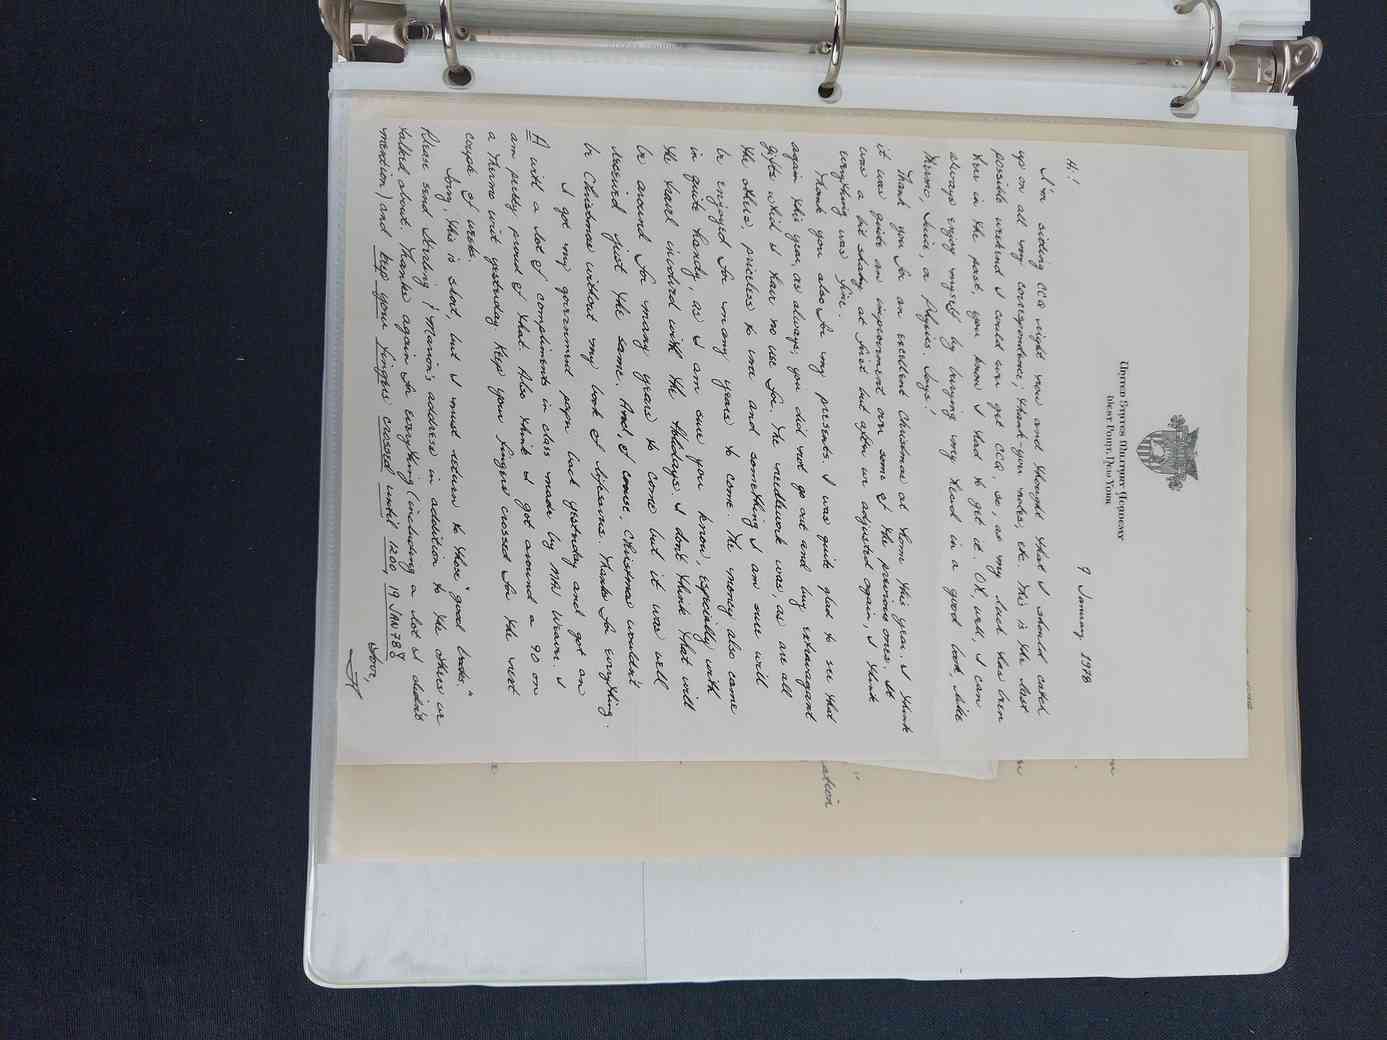 United States Military Academy
West Point, New York
9 January 1978
Hi!
I'm sitting CCQ right now and thought that I should catch
up on all my correspondence; thank you notes, etc. This is the last
possible weekend I could ever get CCQ, so, as my luck has been
here in the past, you know I had to get it. Oh, well, I can
always enjoy myself by burying my head in a good book, like
Thermo, Juice, or Physics. Joys!
Thank you for an excellent Christmas at home this year. I think
it was quite an improvement over some of the previous ones. It
was a bit shaky at first but after we adjusted again, I think
everything was fine.
Thank you also for my presents. I was quite glad to see that
again this year, as always, you did not go out and buy extravagant
gifts which I have no use for. The needlework was, as are all
the others, priceless to me and something I am sure will
be enjoyed for many years to come. The money also came
in quite handy, as I am sure you know, especially with
the travel involved with the Holidays. I don't think that will
be around for many years to come but it was well
received just the same. And, of course, Christmas wouldn't
be Christmas without my book of lifesavers. Thanks for everything.
I got my government paper back yesterday and got an
A with a lot of compliments in class made by MAJ Weaver. I
am pretty proud of that. Also think I got around a 90 on
a Thermo writ yesterday. Keep your fingers crossed for the next
couple of weeks.
Sorry, this is short, but I must return to those "good books."
Please send Sterling & Marvin's address in addition to the others we
talked about. Thanks again for everything (including a lot I didn't
mention) and keep your fingers crossed until 1200, 19 JAN 78!
Love,
ation